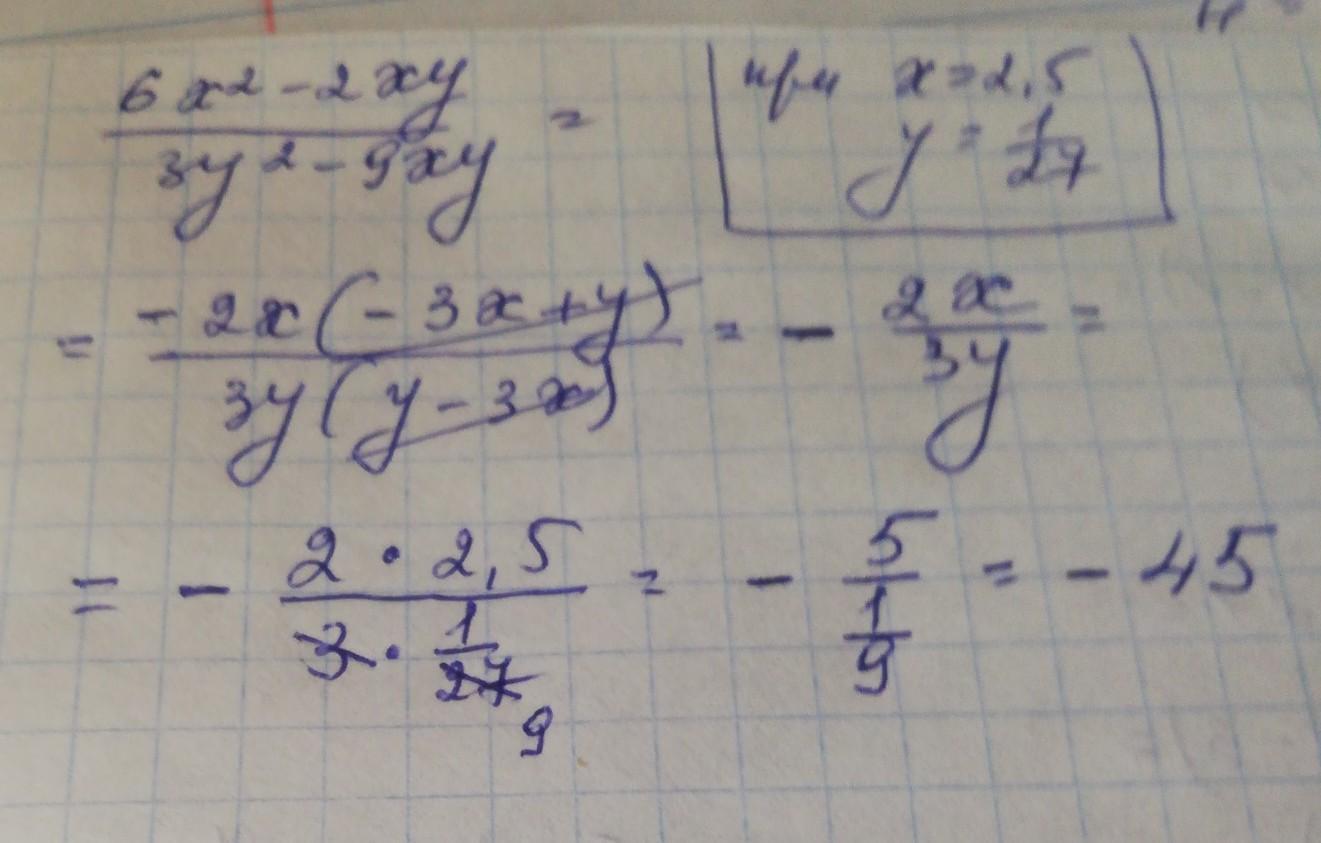 6x² - 2xy / 3y² - 9xy =
при x = 2,5
y = 1/27
= -2x(-3x+y) / 3y(y-3x) = - 2x / 3y =
= - 2 · 2,5 / 3 · 1/27 9 = - 5 / 1/9 = - 45